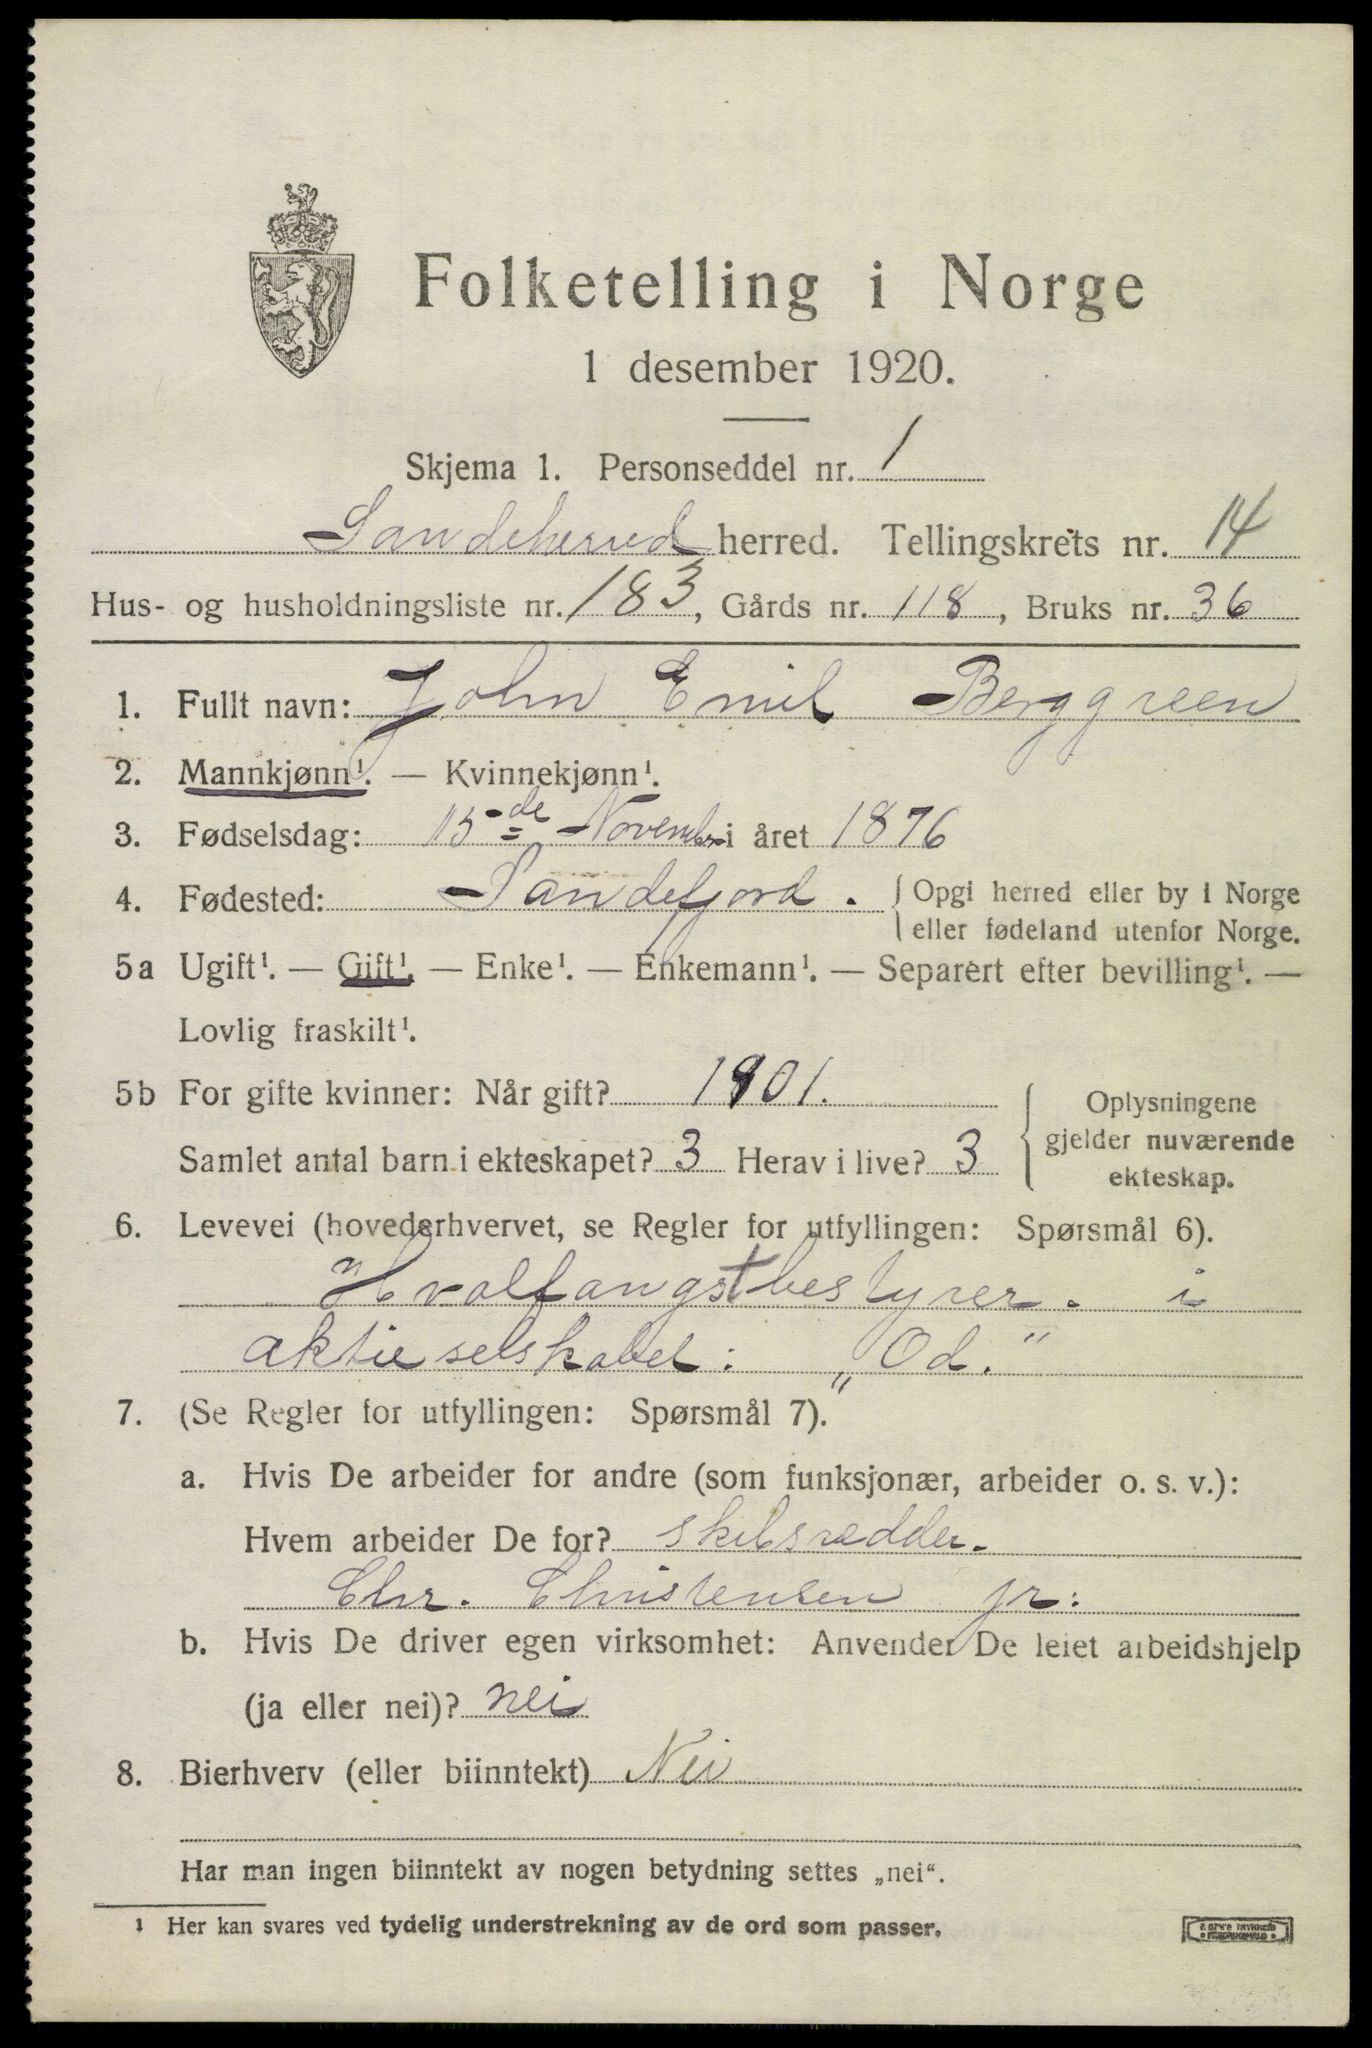 Folketelling i Norge
1 desember 1920.
Skjema 1. Personseddel nr. 1
Sandeherred herred. Tellingskrets nr. 14
Hus- og husholdningsliste nr. 183, Gårds nr. 118, Bruks nr. 36
1. Fullt navn: John Emil Berggreen
2. Mannkjønn¹. — Kvinnekjønn¹.
3. Fødselsdag: 15de November i året 1876
4. Fødested: Sandefjord. { Opgi herred eller by i Norge
eller fødeland utenfor Norge.
5a Ugift¹. — Gift¹. — Enke¹. — Enkemann¹. — Separert efter bevilling¹. —
Lovlig fraskilt¹.
5b For gifte kvinner: Når gift? 1901. { Oplysningene
gjelder nuværende
Samlet antal barn i ekteskapet? 3 Herav i live? 3
ekteskap.
6. Levevei (hovederhvervet, se Regler for utfyllingen: Spørsmål 6).
Hvalfangstbestyrer. i
aktieselskabet: „Od.“
7. (Se Regler for utfyllingen: Spørsmål 7).
a. Hvis De arbeider for andre (som funksjonær, arbeider o. s. v.):
Hvem arbeider De for? skibsredder.
Chr. Christensen jr:
b. Hvis De driver egen virksomhet: Anvender De leiet arbeidshjelp
(ja eller nei)? nei
8. Bierhverv (eller biinntekt) Nei
Har man ingen biinntekt av nogen betydning settes „nei“.
¹ Her kan svares ved tydelig understrekning av de ord som passer.